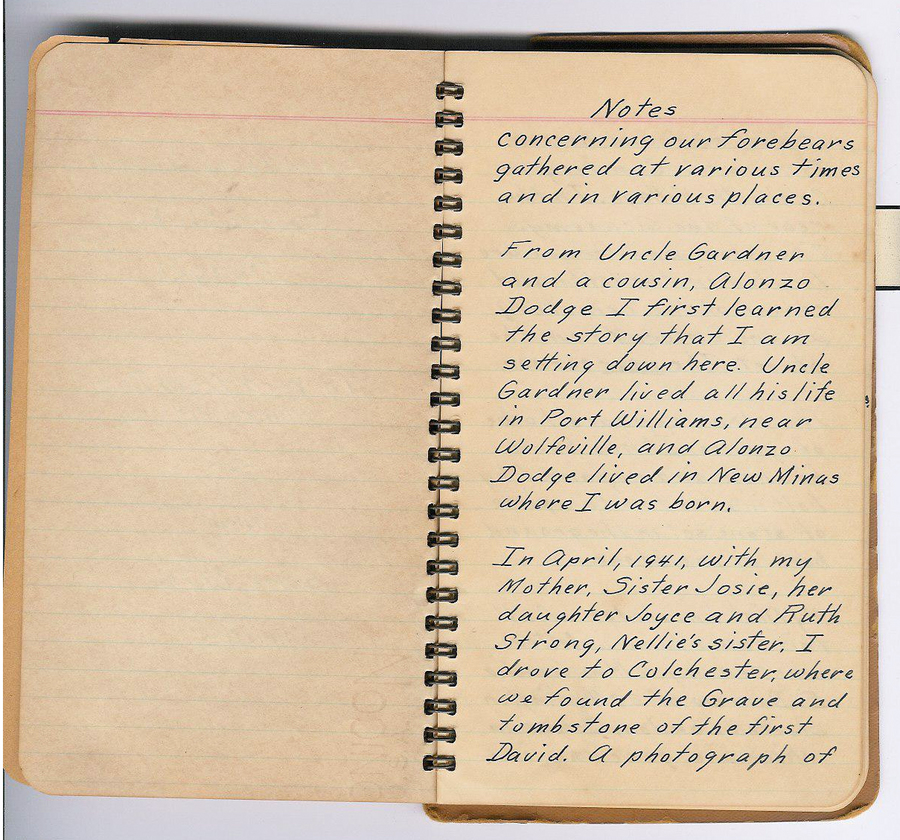 Notes
concerning our forebears
gathered at various times
and in various places.
From Uncle Gardner
and a cousin, Alonzo
Dodge I first learned
the story that I am
setting down here. Uncle
Gardner lived all his life
in Port Williams, near
Wolfeville, and Alonzo
Dodge lived in New Minas
where I was born.
In April, 1941, with my
Mother, Sister Josie, her
daughter Joyce and Ruth
Strong, Nellie's sister, I
drove to Colchester, where
we found the Grave and
tombstone of the first
David. A photograph of